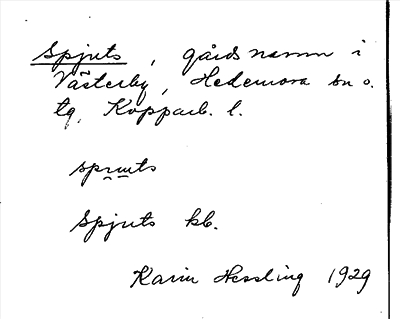 Spjuts, gårdsnamn i
Västerby, Hedemora sn o.
tg, Kopparb. l.
Spjuts kb.
Karin Hessling 1929